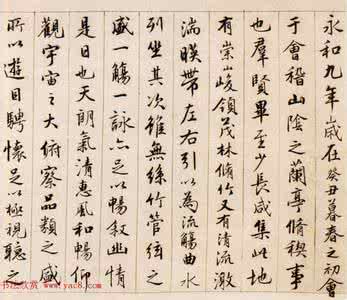 永和九年歲在癸丑暮春之初會
于會稽山陰之蘭亭脩稧事
也羣賢畢至少長咸集此地
有崇山峻領茂林脩竹又有清流激
湍暎帶左右引以為流觴曲水
列坐其次雖無絲竹管弦之
盛一觴一詠亦足以暢叙幽情
是日也天朗氣清惠風和暢仰
觀宇宙之大俯察品類之盛
所以遊目騁懷足以極視聽之
书法欣赏 www.yac8.com